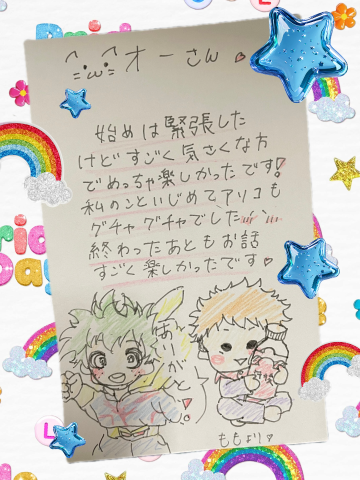 オーさん
始めは緊張した
けどすごく気さくな方
でめっちゃ楽しかったです!
私のこといじめてアソコも
グチャグチャでした
終わったあともお話
すごく楽しかったです♡
ありがと!
ももより♡